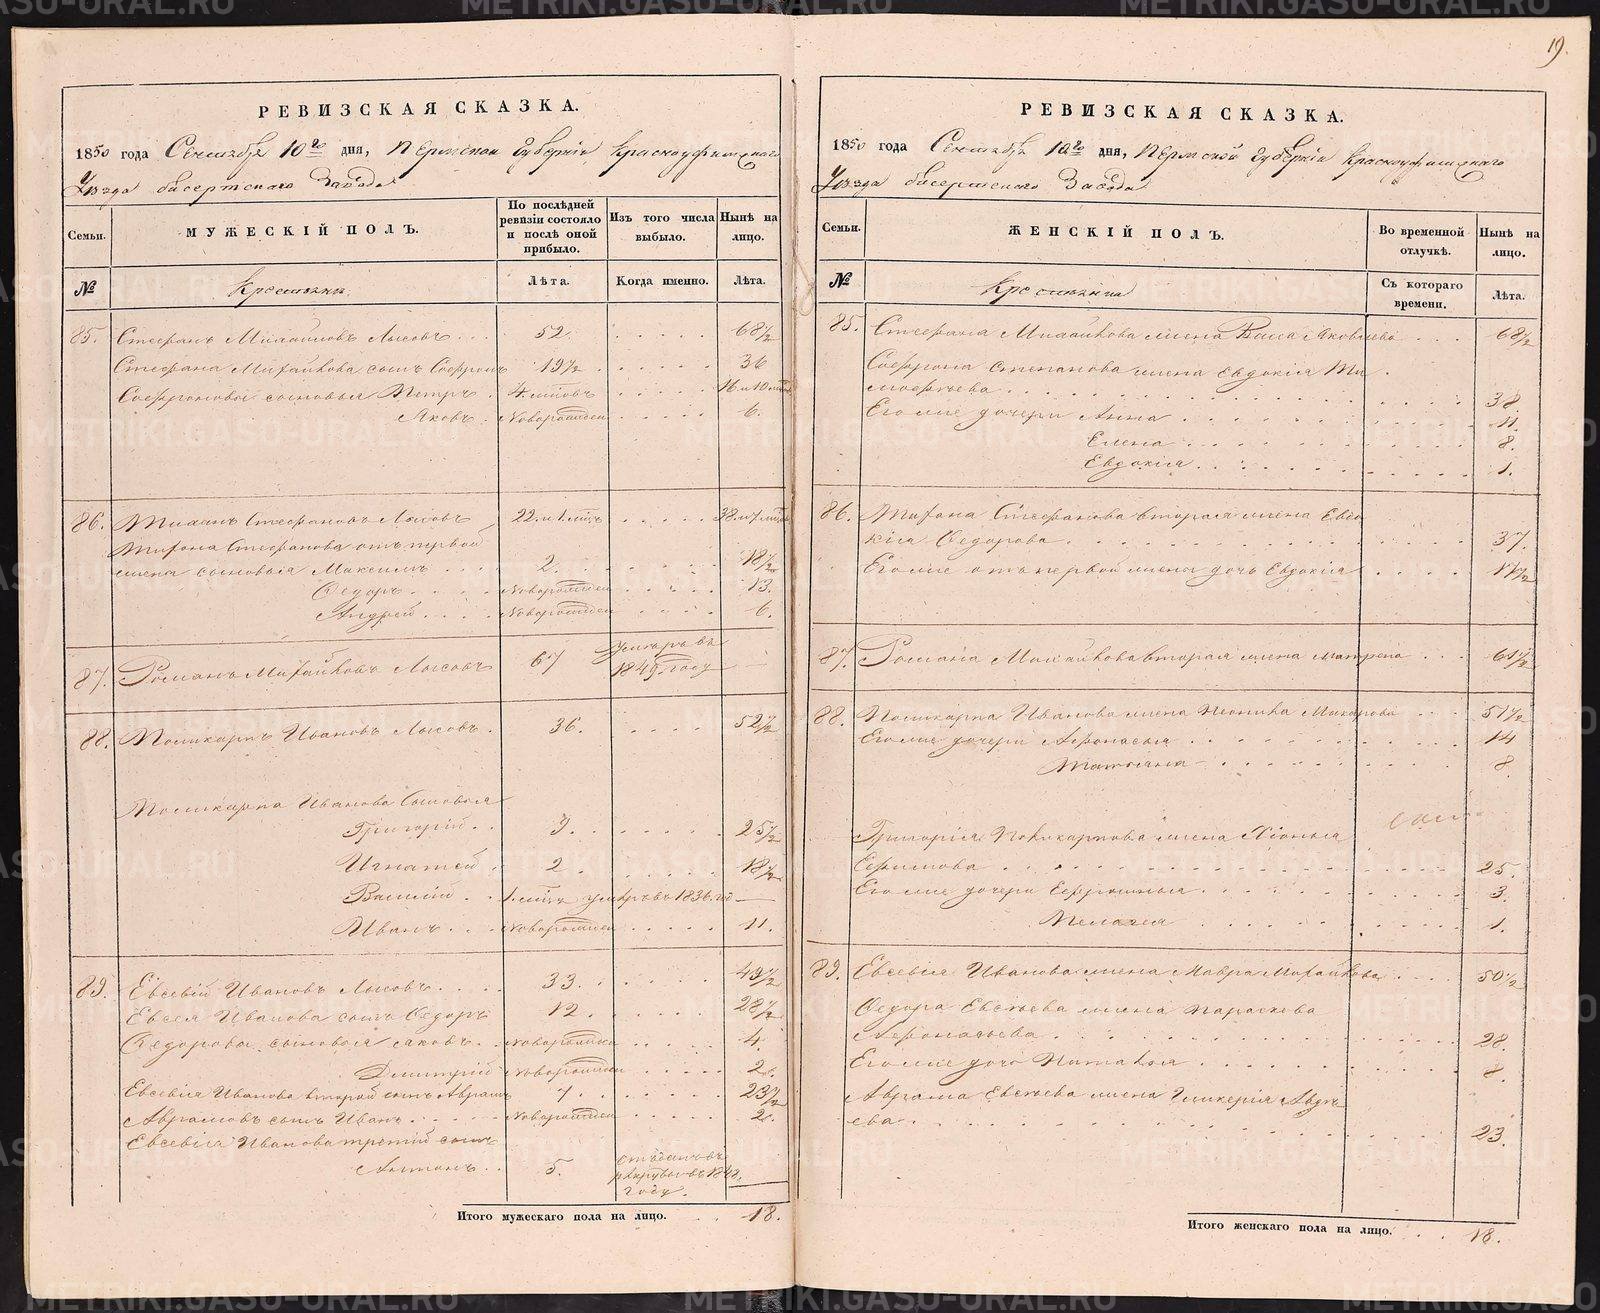 19.
РЕВИЗСКАЯ СКАЗКА.
1850 года Сентября 10го дня, Пермской Губерніи Красноуфимскаго
Уѣзда бисертскаго Завода
Семьи.
МУЖЕСКІЙ ПОЛЪ.
По послѣдней ревизіи состояло и послѣ оной прибыло.
Изъ того числа выбыло.
Нынѣ на лицо.
№
Крестьяне
Лѣта.
Когда именно.
Лѣта.
85. Стефанъ Михайловъ Лысовъ 52. 68 1/2
Стефана Михайлова сынъ Софронъ 19 1/2 36
Софроновы сыновья Петръ 4. мѣсвъ 16 и 10 мѣсвъ
Яковъ Новорожден 6.
86. Тихонъ Стефановъ Лысовъ 22. и 1. мѣсъ 38. и 7 мѣсвъ
Тихона Стефанова отъ первой
жены сыновья Максимъ 2. 18 1/2
Ѳедоръ Новорожден 13.
Андрей Новорожден 6.
87. Романъ Михайловъ Лысовъ 67 умеръ въ 1849. году
88. Поликарпъ Ивановъ Лысовъ 36. 52 1/2
Поликарпа Иванова Сыновья
Григорій 9. 25 1/2
Игнатей 2. 18 1/2
Василій 1. мѣсъ умеръ въ 1836. год
Иванъ Новорожден 11.
89. Евсевій Ивановъ Лысовъ 33. 49 1/2
Евсевія Иванова сынъ Ѳедоръ 12. 28 1/2
Ѳедоровы сыновья Яковъ Новорожден 4.
Дмитрій Новорожден 2.
Евсевія Иванова второй сынъ Аврамъ 7. 23 1/2
Аврамовъ сынъ Иванъ Новорожден 2.
Евсевія Иванова третій сынъ
Антонъ 5. отданъ въ рекруты въ 1848. году.
Итого мужескаго пола на лицо. 18.
РЕВИЗСКАЯ СКАЗКА.
1850 года Сентября 10го дня, Пермской Губерніи Красноуфимскаго
Уѣзда бисертскаго Завода
Семьи.
ЖЕНСКІЙ ПОЛЪ.
Во временной отлучкѣ.
Нынѣ на лицо.
№
Крестьяне
Съ котораго времени.
Лѣта.
85. Стефана Михайлова жена Васса Яковлева 68 1/2
Софрона Степанова жена Евдокія Ти
мофѣева 38.
Его же дочери Анна 11.
Елена 8.
Евдокія 1.
86. Тихона Стефанова вторая жена Евдо
кія Ѳедорова 37.
Его же отъ первой жены дочь Евдокія 17 1/2
87. Романа Михайлова вторая жена Матрена 61 1/2
88. Поликарпа Иванова жена Неонила Макарова 51 1/2
Его же дочери Афонасья 14
Татьяна 8.
Григорія Поликарпова жена Хіонья
Ефимова 25.
Его же дочери Ефросинья 3.
Пелагея 1.
89. Евсевія Иванова жена Мавра Михайлова 50 1/2
Ѳедора Евсѣева жена Параскева
Афонасьева 28.
Его же дочь Наталья 8.
Аврама Евсѣева жена Гликерія Авдѣ
ева 23.
Итого женскаго пола на лицо. 18.
METRIKI.GASO-URAL.RU